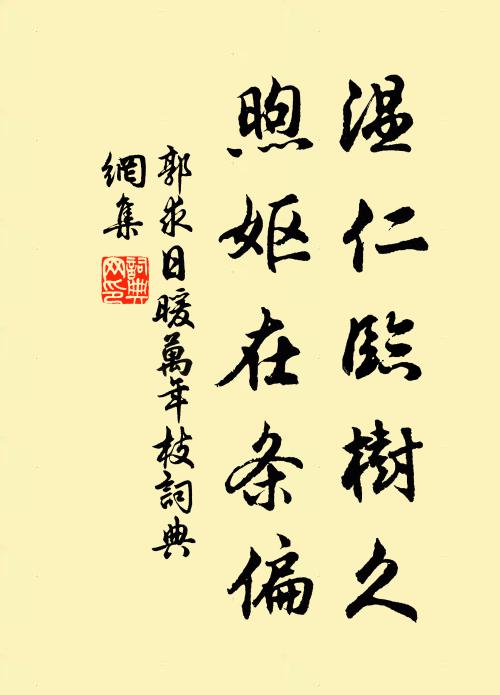 温仁臨樹久
煦妪在条偏
郭求日暖萬年枝詞典
網集
詞典
网印